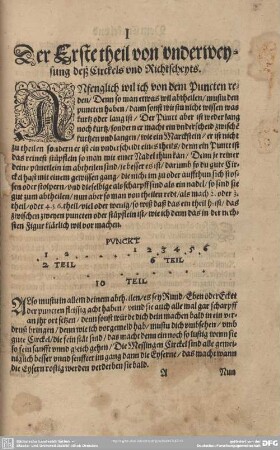 I
Der Erste theil von vnderwey-
sung deß Circkels vnd Richtscheyts.
ANfenglich wil ich von dem Puncten re-
den / Denn so man etwas wil abtheilen / mustu den
puncten haben / dann sonst weistu nicht wissen was
kurtz oder lang ist / Der Punct aber ist weder lang
noch kurtz / sondern er macht ein vnderscheid zwische
kurtzen vnd langen / wie ein Marckstein / er ist nicht
zu theilen / sondern er ist ein vnderscheid eines theils / denn ein Punct ist
das reinest stüpflein so man mit einer Nadel thun kan / Denn je reiner
deine pünctlein im abtheilen sind / je besser es ist / darumb so du gute Circkel
hast mit einem gewissen gang /
gut zum abtheilen / nun aber so man von theilen redt / als mach 2. oder 3.
theil / oder 4. 6. theil / viel oder wenig / so wiß daß das ein theil ist / das
zwischen zweyen puncten oder stüpflein ist / wie ich denn das in der nech-
sten Figur klärlich wil vor machen.
PVNCKT
1 2 3 4 5 6
2 TEIL 6 TEIL
10 TEIL
ALso mustu in allem deinem abtheilen / es sey Rund / Eben oder Eckt
der puncten fleissig acht haben / vnnd sie auch alle mal gar scharpff
an jhr ort setzen / denn sonst würde dich dein machen bald in ein ver-
druß bringen / denn wie ich vorgemelt hab / mustu dich vmbsehen / vmb
gute Circkel / die fein stät sind / das macht denn ein noch so lustig wenn sie
so fein sanfft vnnd gleich gehen / Die Messingen Circkel sind alle gewe-
niglich besser vnnd senffter im gang dann die Eyserne / das macht wann
die Eysern rostig werden verderben sie bald.
A Nun